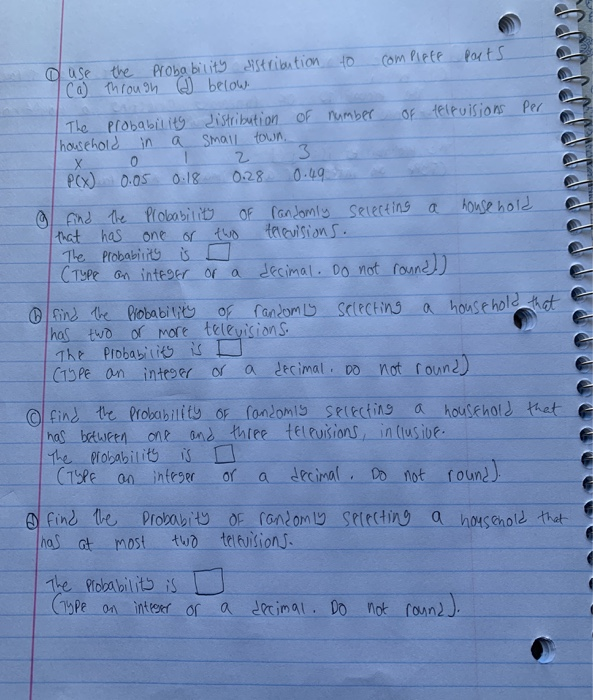 ① use the probability distribution to complete parts
(a) through (d) below.
The probability distribution of number of televisions per
household in a small town.
x 0 1 2 3
P(x) 0.05 0.18 0.28 0.49
ⓐ find the Probability of randomly selecting a household
that has one or two televisions.
The probability is □
(Type an integer or a decimal. Do not round))
ⓑ find the Probability of randomly selecting a household that
has two or more televisions.
The Probability is □
(Type an integer or a decimal. DO not round)
ⓒ find the Probabillity of randomly selecting a household that
has between one and three televisions, inclusive.
The probability is □
(Type an integer or a decimal. Do not round).
ⓓ find the Probabity of randomly selecting a household that
has at most two televisions.
The Probability is □
(Type an integer or a decimal. Do not round).